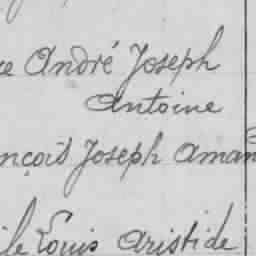 ce André Joseph
Antoine
nçois Joseph Aman
ile Louis Aristide